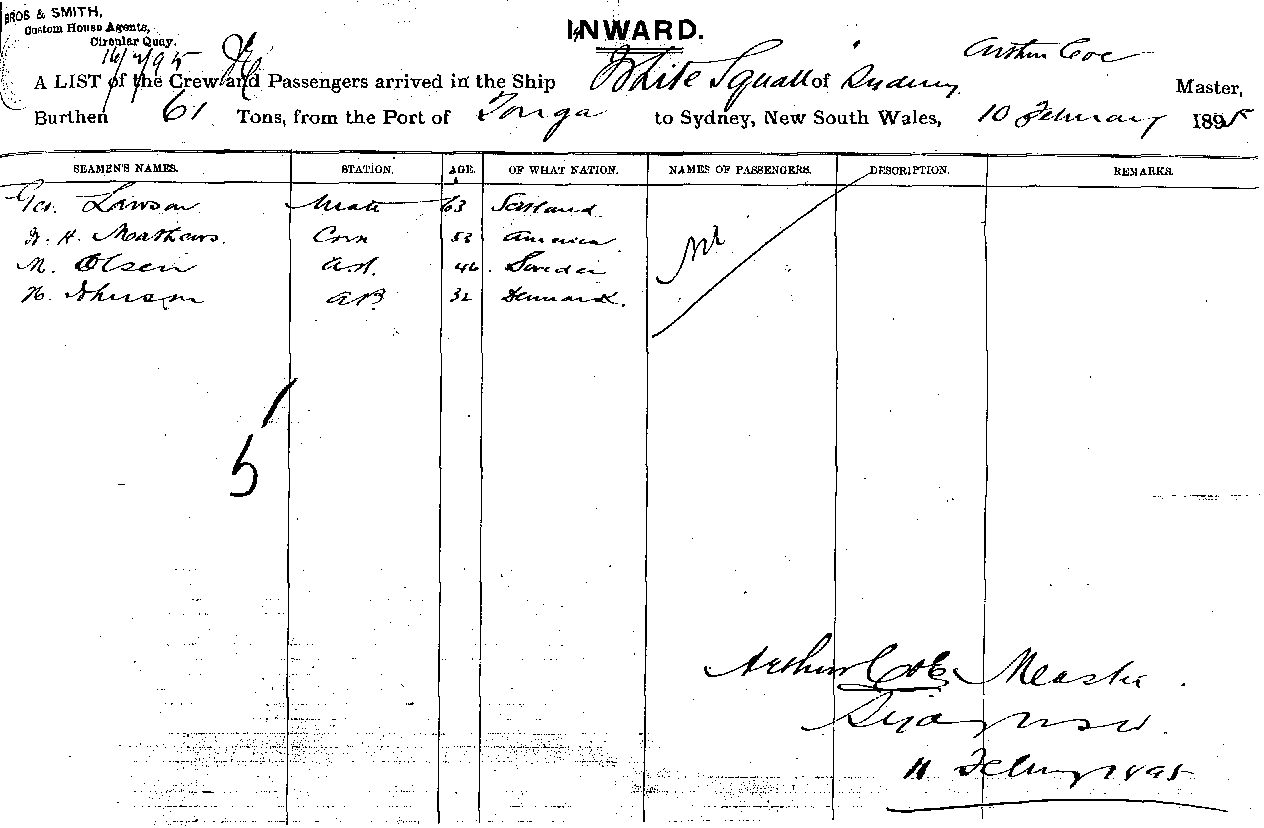 BROS & SMITH,
Custom House Agents,
Circular Quay.
INWARD.
16/2/95
Arthur Coe
A LIST of the Crew and Passengers arrived in the Ship White Squall of Sydney Master,
Burthen 61 Tons, from the Port of Tonga to Sydney, New South Wales, 10 February 1895
SEAMEN'S NAMES. STATION. AGE. OF WHAT NATION. NAMES OF PASSENGERS. DESCRIPTION. REMARKS.
Geo. Lawson Mate 63 Scotland
H. Mathews. Cook 53 America
M. Olsen AB. 46 Sweden
H. Johnson AB 32 Denmark.
Nil
5
Arthur Coe Master.
Sydney NSW.
11 Febury 1895